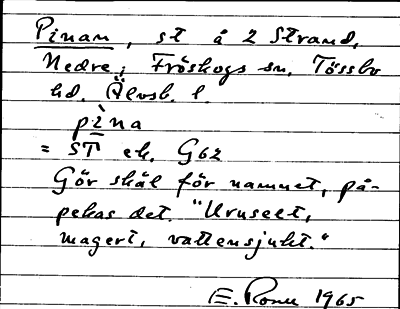 Pinan, st å 2 Strand,
Nedre, Fröskogs sn. Tössbo
hd. Älvsb. l.
pìna
= ST ek. G62
Gör skäl för namnet, på-
pekas det. "Uruselt,
magert, vattensjukt."
E. 1965